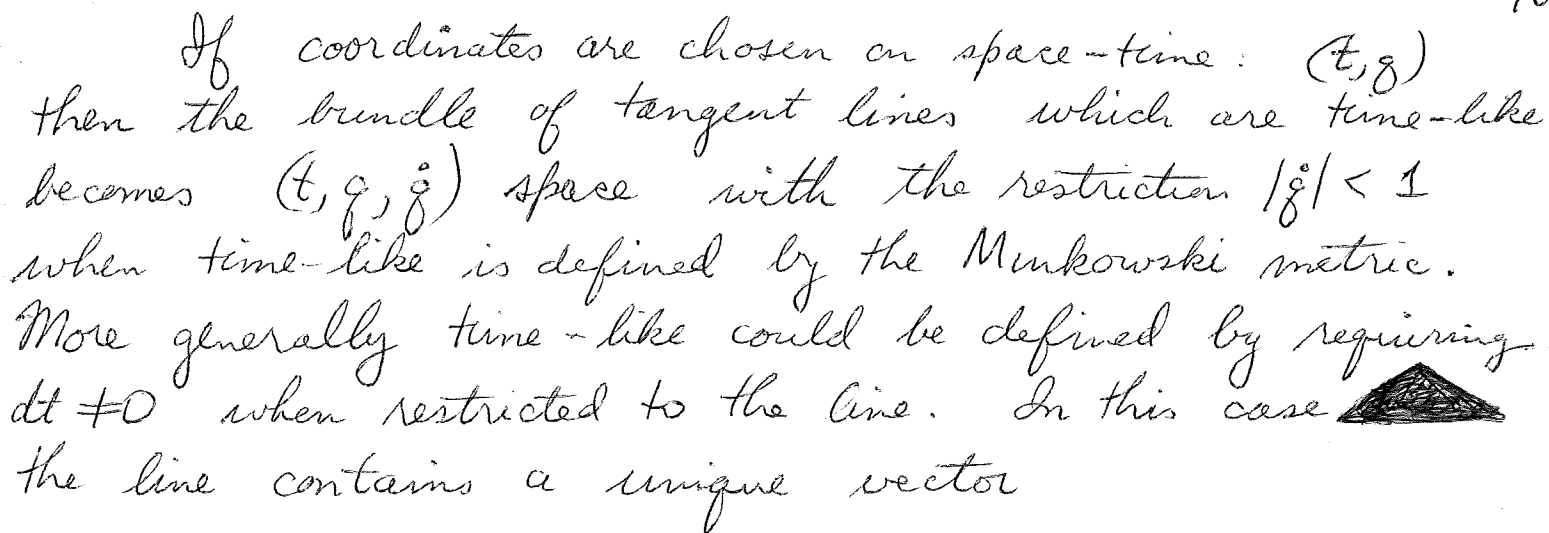 If coordinates are chosen on space-time: (t, q)
then the bundle of tangent lines which are time-like
becomes (t, q, q̇) space with the restriction |q̇| < 1
when time-like is defined by the Minkowski metric.
More generally time-like could be defined by requiring
dt ≠ 0 when restricted to the line. In this case
the line contains a unique vector